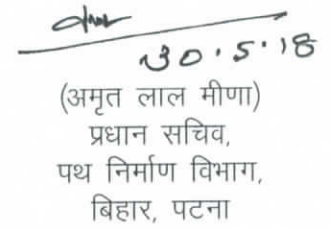 30.5.18
(अमृत लाल मीणा)
प्रधान सचिव,
पथ निर्माण विभाग,
बिहार, पटना